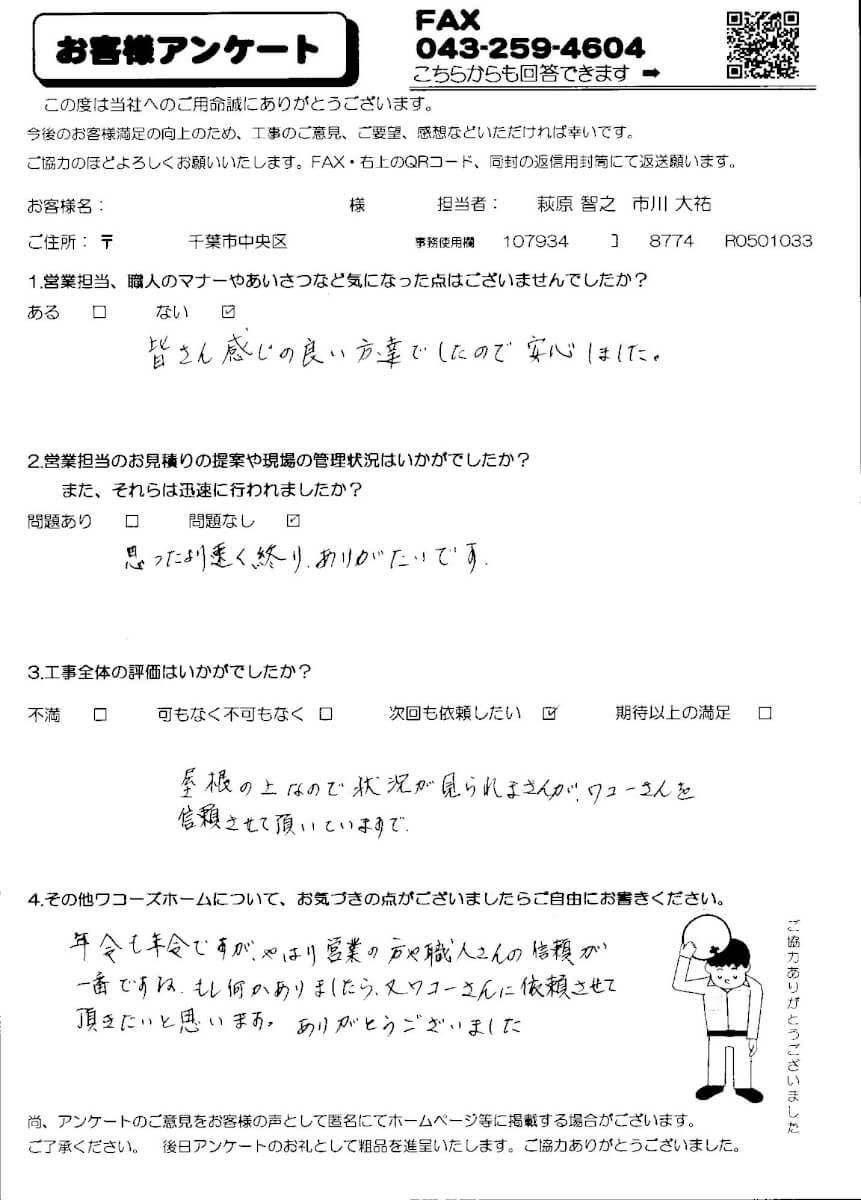 お客様アンケート
FAX
043-259-4604
こちらからも回答できます ➡
この度は当社へのご用命誠にありがとうございます。
今後のお客様満足の向上のため、工事のご意見、ご要望、感想などいただければ幸いです。
ご協力のほどよろしくお願いいたします。FAX・右上のQRコード、同封の返信用封筒にて返送願います。
お客様名： 様 担当者： 萩原 智之 市川 大祐
ご住所：〒 千葉市中央区 事務使用欄 107934 コ 8774 R0501033
1.営業担当、職人のマナーやあいさつなど気になった点はございませんでしたか？
ある □ ない ☑
皆さん感じの良い方達でしたので安心しました。
2.営業担当のお見積りの提案や現場の管理状況はいかがでしたか？
また、それらは迅速に行われましたか？
問題あり □ 問題なし ☑
思ったより速く終り、ありがたいです.
3.工事全体の評価はいかがでしたか？
不満 □ 可もなく不可もなく □ 次回も依頼したい ☑ 期待以上の満足 □
屋根の上なので状況が見られませんが、ワコーさんを
信頼させて頂いていますで.
4.その他ワコーズホームについて、お気づきの点がございましたらご自由にお書きください。
年令も年令ですが、やはり営業の方や職人さんの信頼が
一番ですね. もし何かありましたら、又ワコーさんに依頼させて
頂きたいと思います。ありがとうございました
ご協力ありがとうございました
尚、アンケートのご意見をお客様の声として匿名にてホームページ等に掲載する場合がございます。
ご了承ください。 後日アンケートのお礼として粗品を進呈いたします。ご協力ありがとうございました。